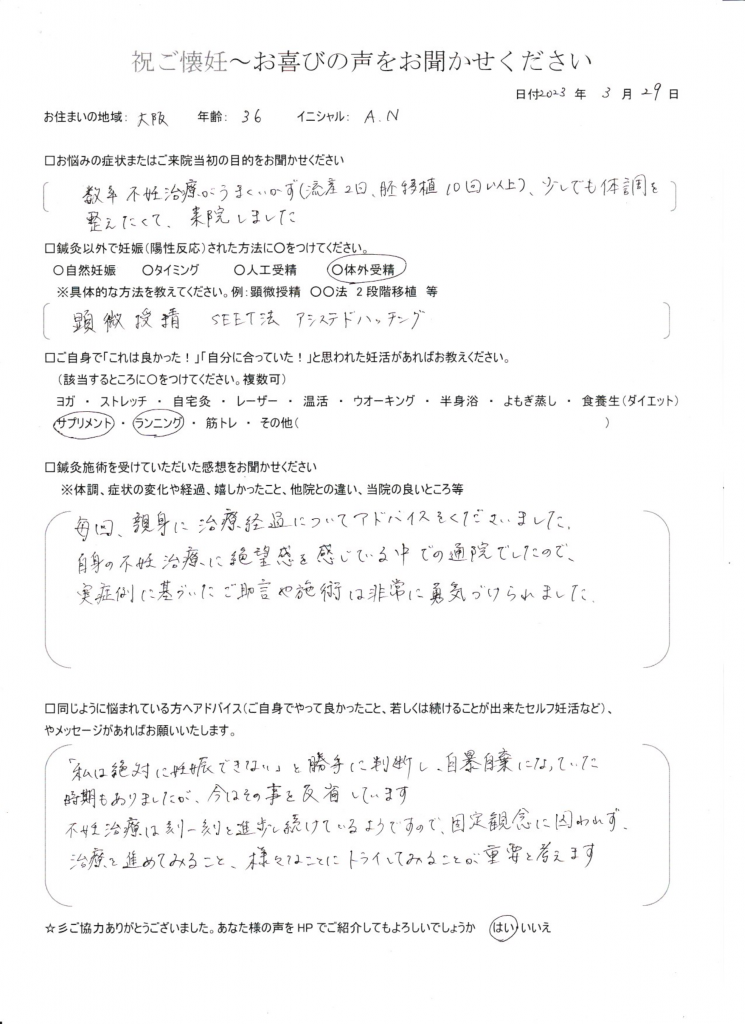 祝ご懐妊～お喜びの声をお聞かせください
日付2023 年 3 月 29 日
お住まいの地域: 大阪 年齢: 36 イニシャル: A.N
□お悩みの症状またはご来院当初の目的をお聞かせください
数年 不妊治療がうまくいかず(流産2回、胚移植 10回以上)、少しでも体調を
整えたくて、来院しました
□鍼灸以外で妊娠(陽性反応)された方法に○をつけてください。
○自然妊娠 ○タイミング ○人工受精 ○体外受精
※具体的な方法を教えてください。例:顕微授精 ○○法 2段階移植 等
顕微授精 SEET法 アシステドハッチング
□ご自身で「これは良かった！」「自分に合っていた！」と思われた妊活があればお教えください。
(該当するところに○をつけてください。複数可)
ヨガ ・ ストレッチ ・ 自宅灸 ・ レーザー ・ 温活 ・ ウオーキング ・ 半身浴 ・ よもぎ蒸し ・ 食養生(ダイエット)
サプリメント ・ ランニング ・ 筋トレ ・ その他( )
□鍼灸施術を受けていただいた感想をお聞かせください
※体調、症状の変化や経過、嬉しかったこと、他院との違い、当院の良いところ等
毎回、親身に治療経過についてアドバイスをくださいました。
自身の不妊治療に絶望感を感じている中での通院でしたので、
実症例に基づいたご助言や施術は非常に勇気づけられました。
□同じように悩まれている方へアドバイス(ご自身でやって良かったこと、若しくは続けることが出来たセルフ妊活など)、
やメッセージがあればお願いいたします。
「私は絶対に妊娠できない」と勝手に判断し、自暴自棄になっていた
時期もありましたが、今はその事を反省しています
不妊治療は刻一刻と進歩し続けているようですので、固定観念に囚われず、
治療を進めてみること、様々なことにトライしてみることが重要と考えます
☆彡ご協力ありがとうございました。あなた様の声をHPでご紹介してもよろしいでしょうか はい・いいえ